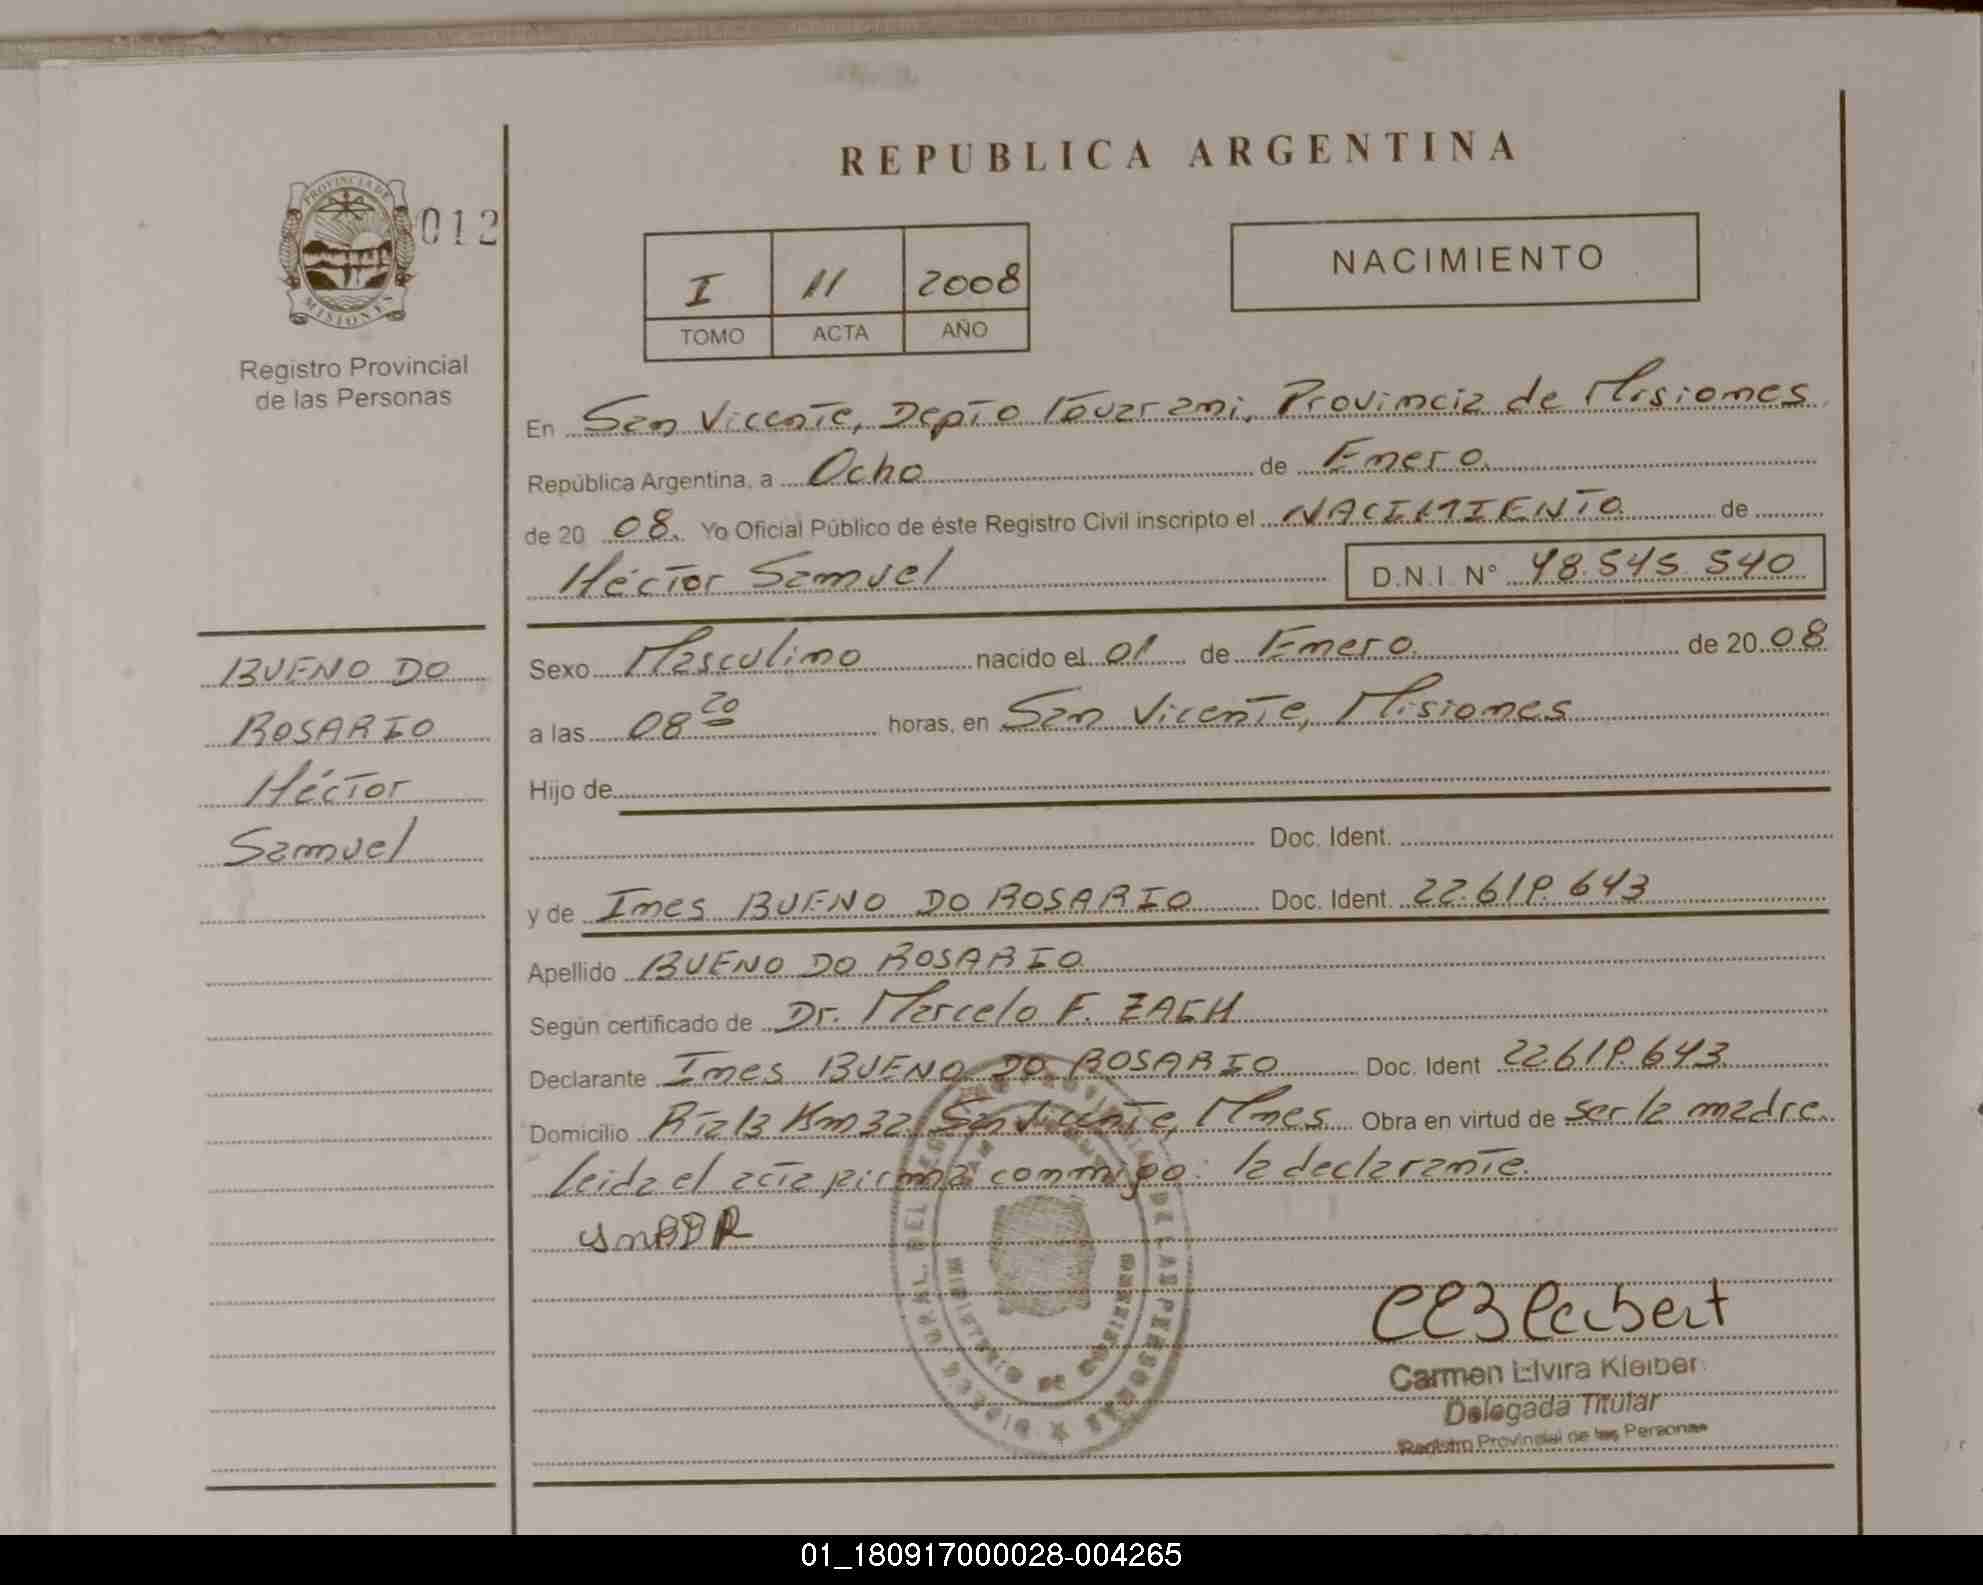 REPUBLICA ARGENTINA
PROVINCIA DE
MISIONES
012
Registro Provincial
de las Personas
I 11 2008
TOMO ACTA AÑO
NACIMIENTO
En San Vicente, Depto Guarani, Provincia de Misiones
República Argentina, a Ocho de Enero
de 20 08. Yo Oficial Público de éste Registro Civil inscripto el NACIMIENTO de
Héctor Samuel D.N.I. Nº 48.545.540
BUENO DO
ROSARIO
Héctor
Samuel
Sexo Masculino nacido el 01 de Enero de 20 08
a las 08 20 horas, en San Vicente, Misiones
Hijo de
Doc. Ident.
y de Ines BUENO DO ROSARIO Doc. Ident. 22.619.643
Apellido BUENO DO ROSARIO
Según certificado de Dr. Marcelo F.
Declarante Ines BUENO DO ROSARIO Doc. Ident 22.619.643
Domicilio Rta 13 Km 32 San Vicente, Mnes. Obra en virtud de ser la madre.
Leida el acta firma conmigo: la declarante.
Carmen Elvira Kleiber
Delegada Titular
Registro Provincial de las Personas
DE LAS PERSONAS
MINISTERIO DE GOBIERNO
01_180917000028-004265